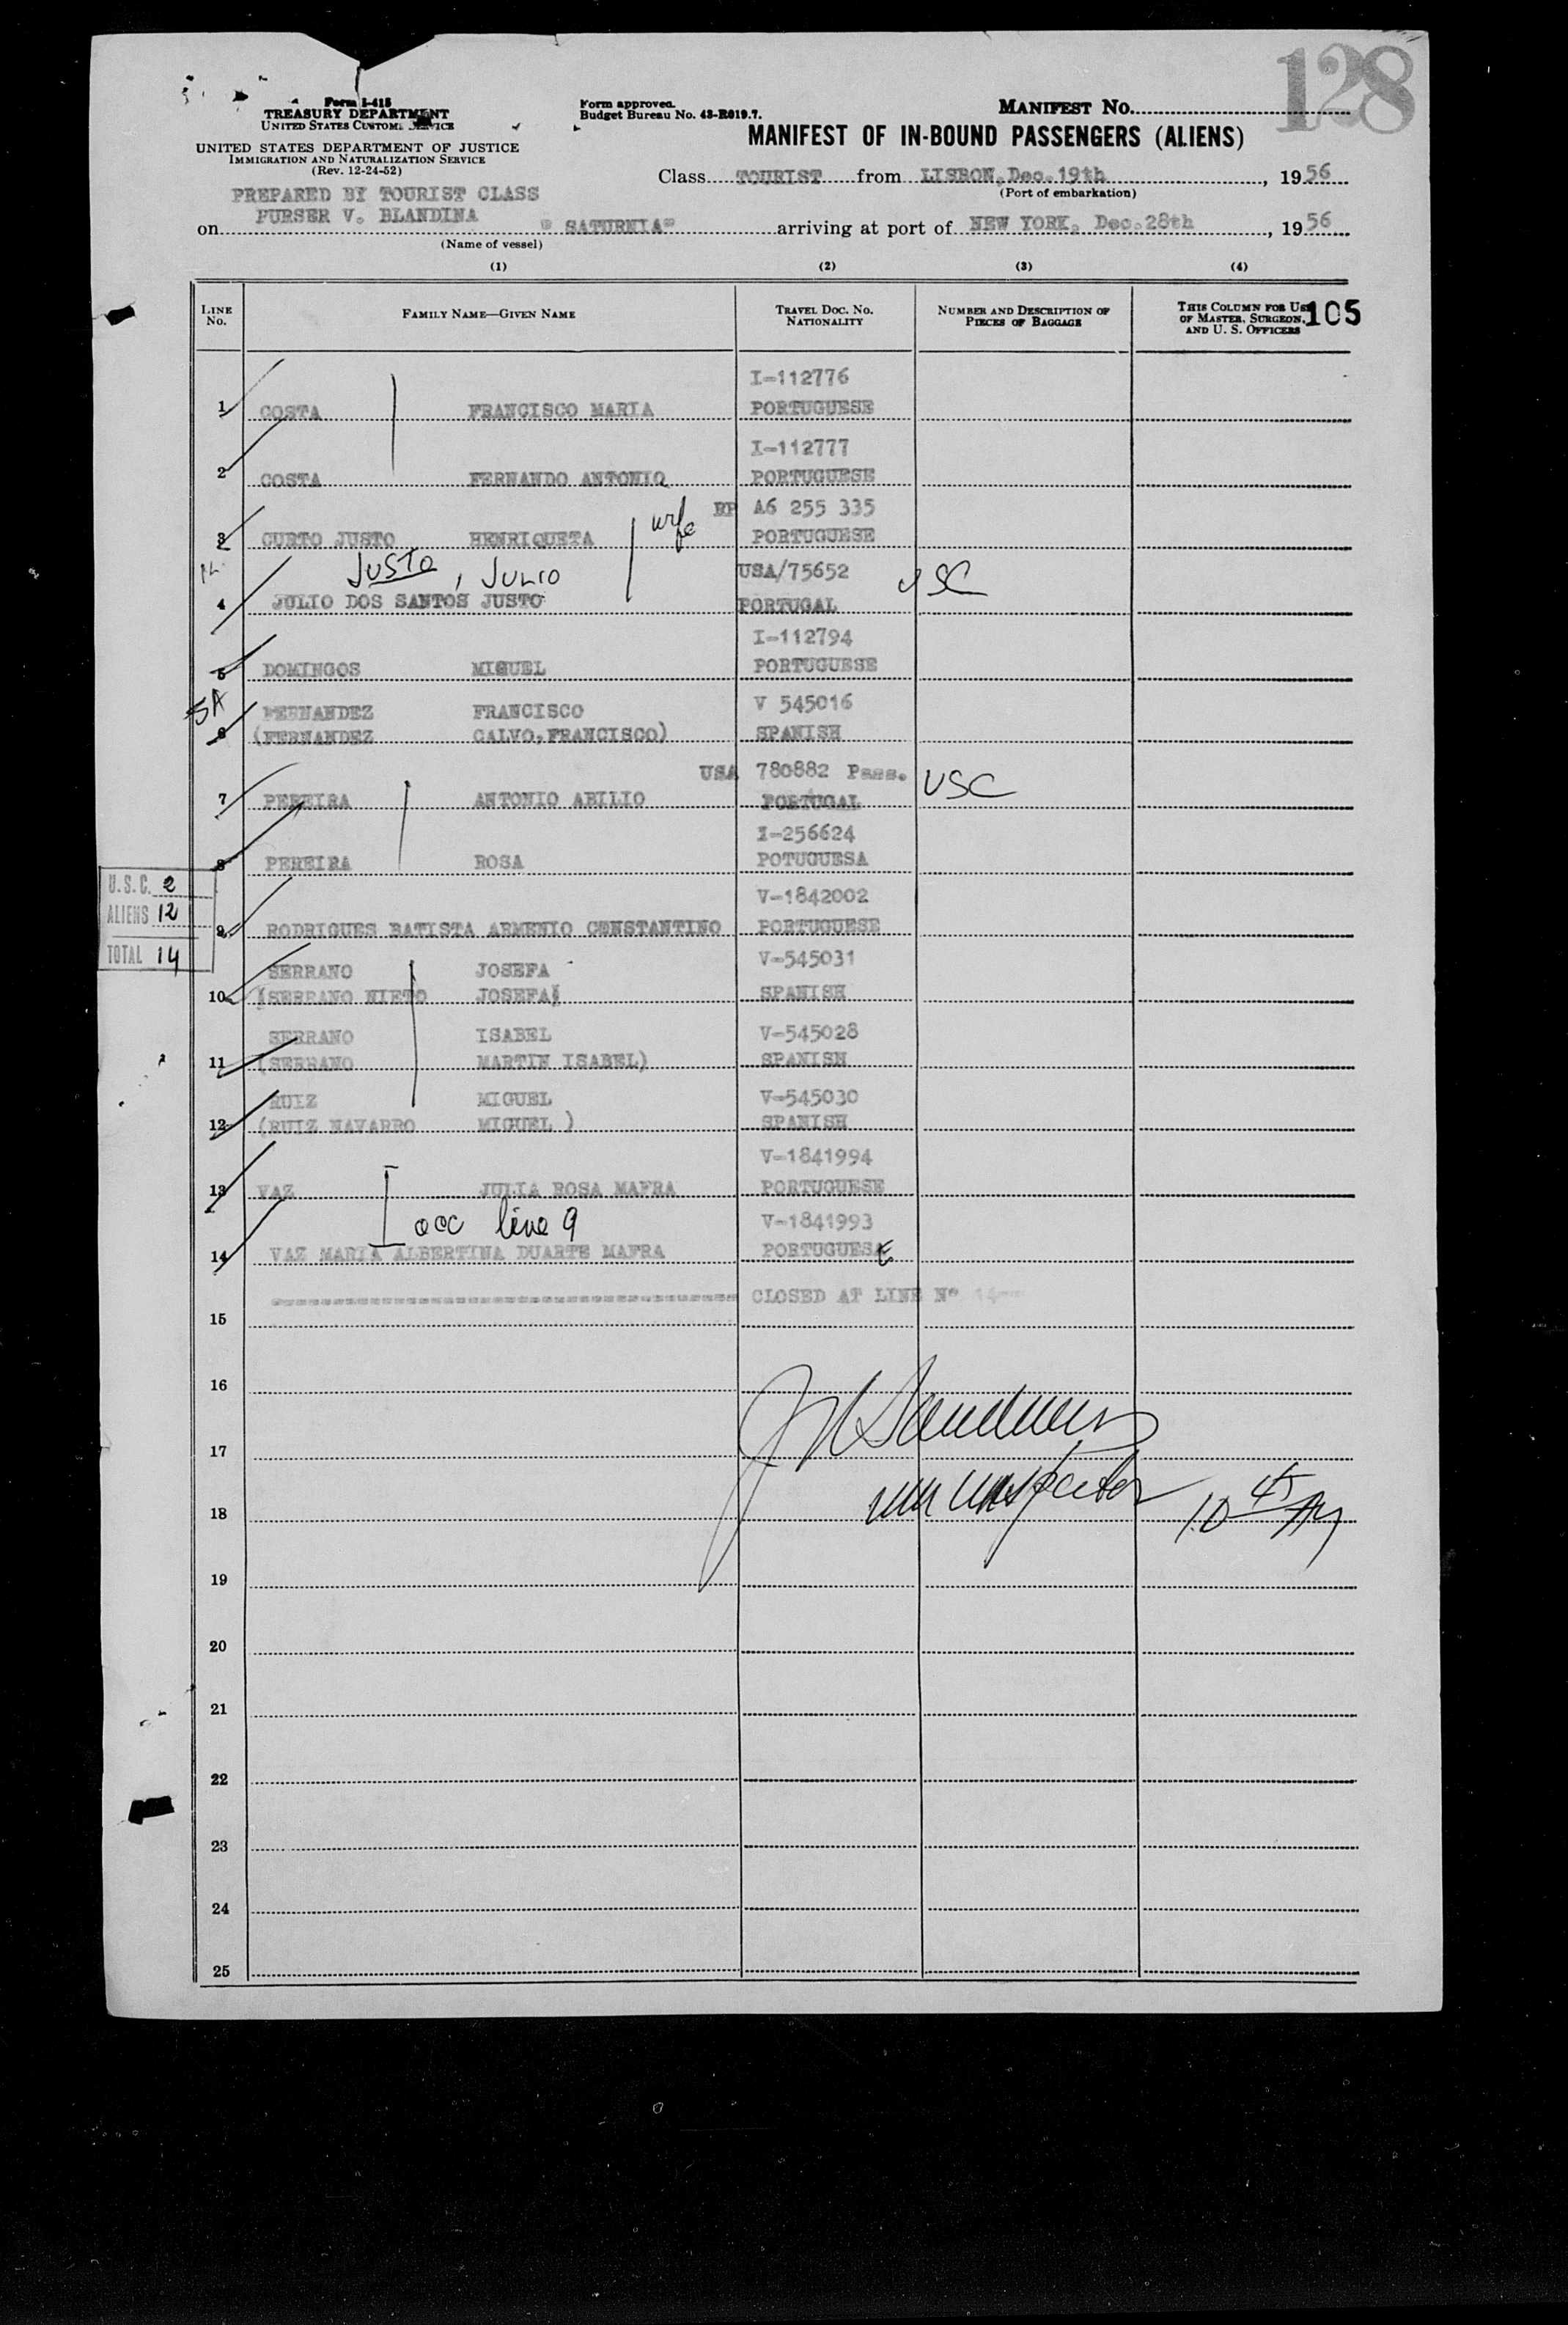 128
Form I-415
TREASURY DEPARTMENT
UNITED STATES CUSTOMS SERVICE
UNITED STATES DEPARTMENT OF JUSTICE
IMMIGRATION AND NATURALIZATION SERVICE
(Rev. 12-24-52)
Form approved.
Budget Bureau No. 43-R019.7.
MANIFEST NO.
MANIFEST OF IN-BOUND PASSENGERS (ALIENS)
Class TOURIST from LISBON, Dec. 19th, 1956
(Port of embarkation)
PREPARED BY TOURIST CLASS
PURSER V. BLANDINA
on "SATURNIA" arriving at port of NEW YORK, Dec. 28th, 1956
(Name of vessel)
(1) (2) (3) (4)
LINE NO. FAMILY NAME—GIVEN NAME TRAVEL DOC. NO. NATIONALITY NUMBER AND DESCRIPTION OF PIECES OF BAGGAGE THIS COLUMN FOR USE OF MASTER, SURGEON, AND U. S. OFFICERS 105
I-112776
1 COSTA FRANCISCO MARIA PORTUGUESE
I-112777
2 COSTA FERNANDO ANTONIO PORTUGUESE
wife RP A6 255 335
3 CURTO JUSTO HENRIQUETA PORTUGUESE
JUSTO, JULIO USA/75652 USC
4 JULIO DOS SANTOS JUSTO PORTUGAL
I-112794
5 DOMINGOS MIGUEL PORTUGUESE
5A FERNANDEZ FRANCISCO V 545016
6 (FERNANDEZ CALVO, FRANCISCO) SPANISH
USA 780882 Pass. USC
7 PEREIRA ANTONIO ABILIO PORTUGAL
I-256624
8 PEREIRA ROSA POTUGUESA
U.S.C. 2
ALIENS 12
TOTAL 14
V-1842002
9 RODRIGUES BATISTA ARMENIO CONSTANTINO PORTUGUESE
SERRANO JOSEFA V-545031
10 (SERRANO NIETO JOSEFA) SPANISH
SERRANO ISABEL V-545028
11 (SERRANO MARTIN ISABEL) SPANISH
RUIZ MIGUEL V-545030
12 (RUIZ NAVARRO MIGUEL ) SPANISH
V-1841994
13 VAZ JULIA ROSA MAFRA PORTUGUESE
acc line 9 V-1841993
14 VAZ MARIA ALBERTINA DUARTE MAFRA PORTUGUESE
CLOSED AT LINE N° 14
15
16
17
Inspector 10 45 AM
18
19
20
21
22
23
24
25